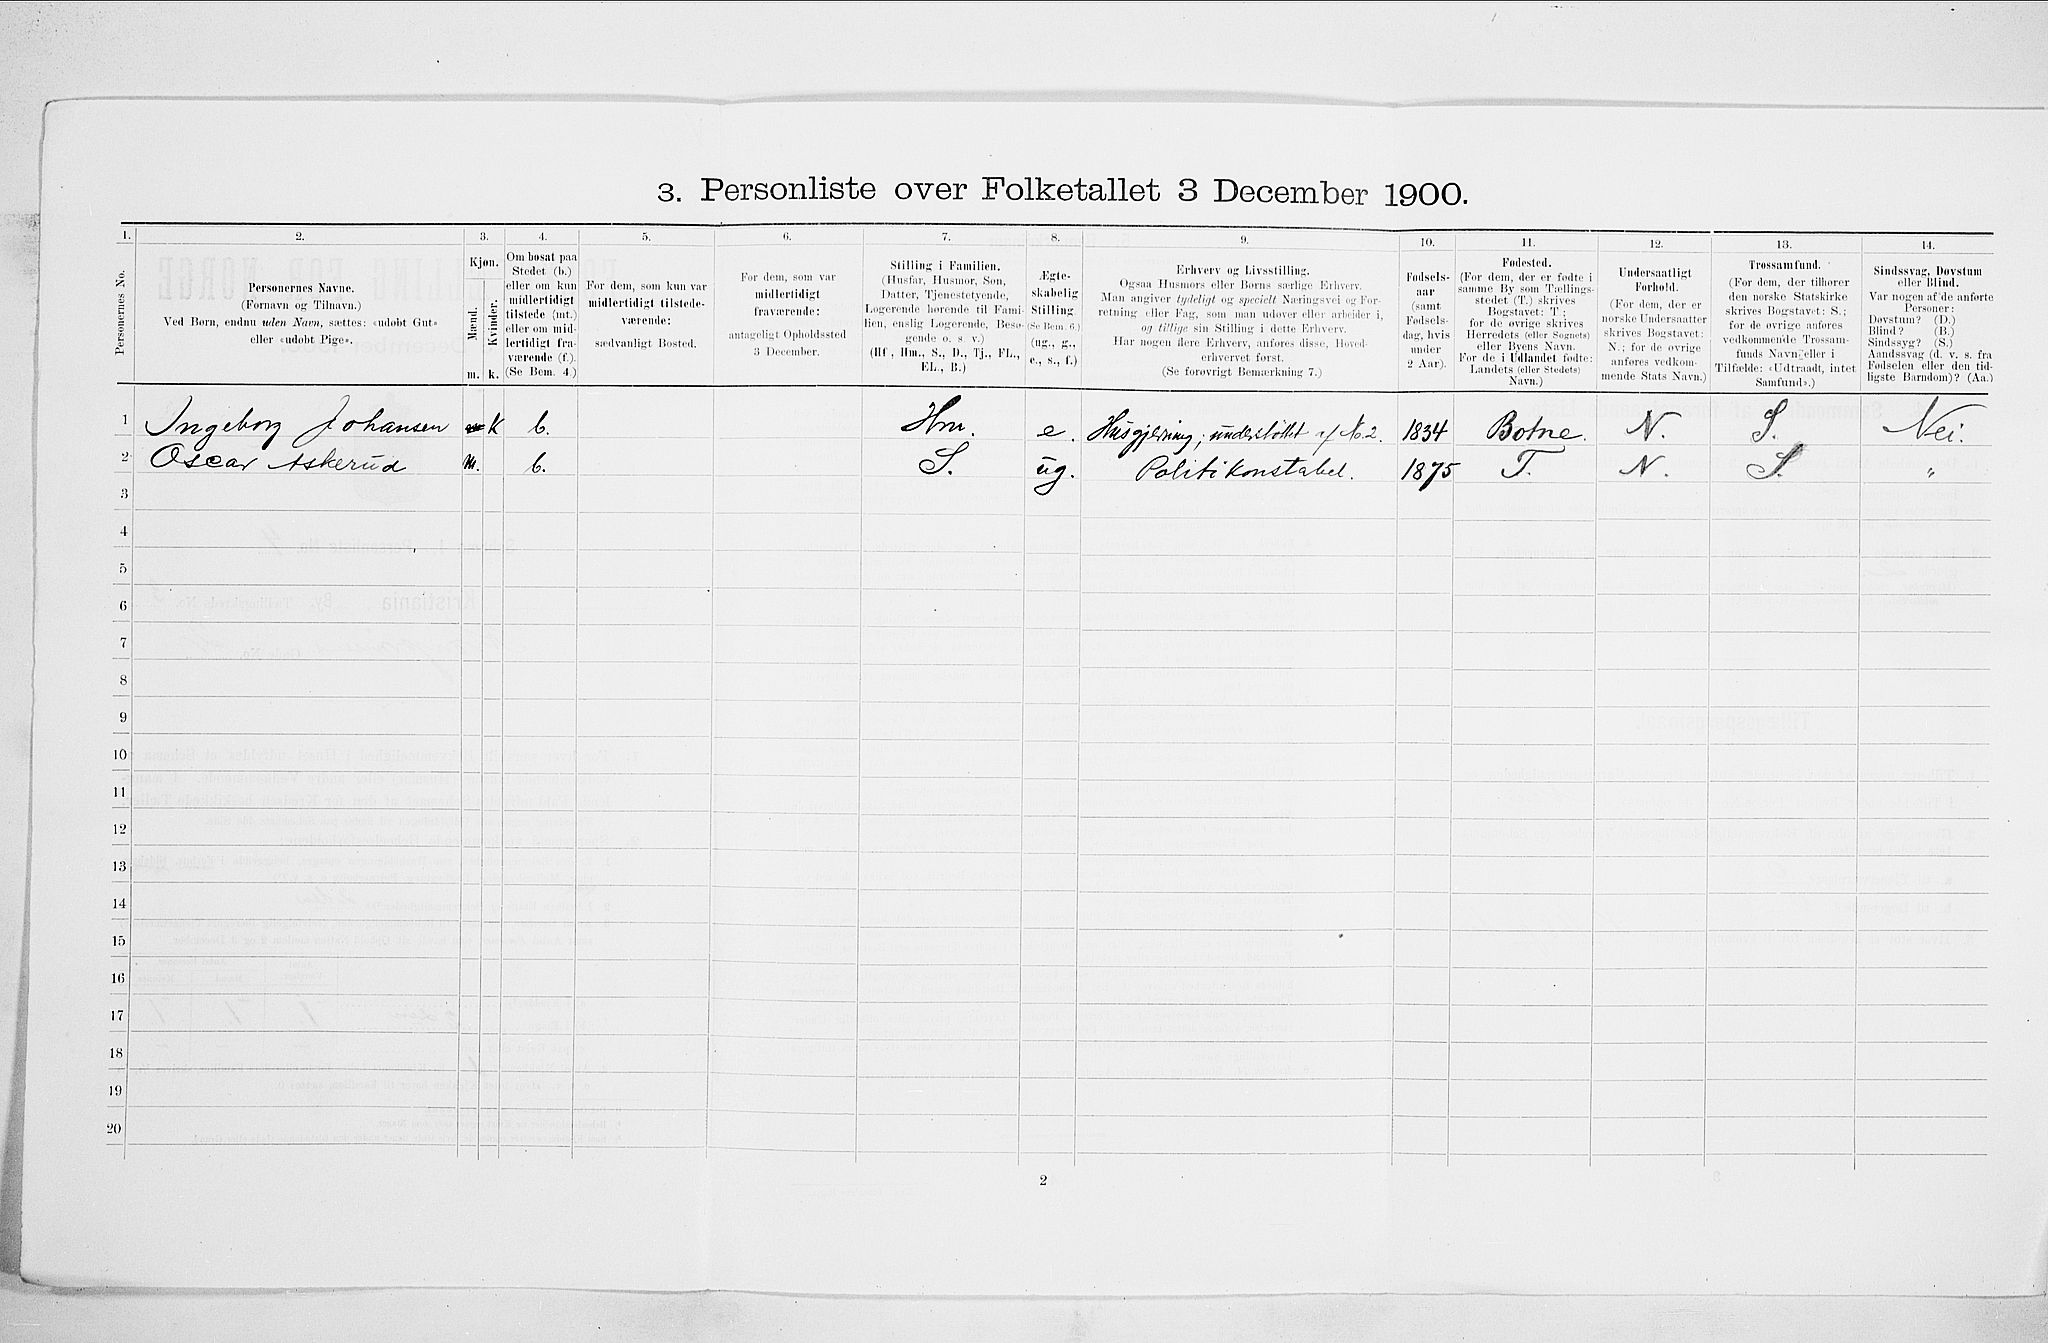 3. Personliste over Folketallet 3 December 1900.
1. 2. 3. 4. 5. 6. 7. 8. 9. 10. 11. 12. 13. 14.
Personernes No.
Personernes Navne.
(Fornavn og Tilnavn.)
Ved Børn, endnu uden Navn, sættes: «udøbt Gut»
eller «udøbt Pige».
Kjøn.
Mænd.
Kvinder.
m. k.
Om bosat paa
Stedet (b.)
eller om kun
midlertidigt
tilstede (mt.)
eller om mid-
lertidigt fra-
værende (f.).
(Se Bem. 4.)
For dem, som kun var
midlertidigt tilstede-
værende:
sædvanligt Bosted.
For dem, som var
midlertidigt
fraværende:
antageligt Opholdssted
3 December.
Stilling i Familien.
(Husfar, Husmor, Søn,
Datter, Tjenestetyende,
Logerende hørende til Fami-
lien, enslig Logerende, Besø-
gende o. s. v.)
(Hf., Hm., S., D., Tj., FL.,
EL., B.)
Ægte-
skabelig
Stilling.
(Se Bem. 6.)
(ug., g.,
e., s., f.)
Erhverv og Livsstilling.
Ogsaa Husmors eller Børns særlige Erhverv.
Man angiver tydeligt og specielt Næringsvei og For-
retning eller Fag, som man udøver eller arbeider i,
og tillige sin Stilling i dette Erhverv.
Har nogen flere Erhverv, anføres disse, Hoved-
erhvervet først.
(Se forøvrigt Bemærkning 7.)
Fødsels-
aar
(samt
Fødsels-
dag, hvis
under
2 Aar).
Fødested.
(For dem, der er fødte i
samme By som Tællings-
stedet (T.) skrives
Bogstavet: T;
for de øvrige skrives
Herredets (eller Sognets)
eller Byens Navn.
For de i Udlandet fødte:
Landets (eller Stedets)
Navn.)
Undersaatligt
Forhold.
(For dem, der er
norske Undersaatter
skrives Bogstavet:
N.; for de øvrige
anføres vedkom-
mende Stats Navn.)
Trossamfund.
(For dem, der tilhører
den norske Statskirke
skrives Bogstavet: S.;
for de øvrige anføres
vedkommende Trossam-
funds Navn, eller i
Tilfælde: «Udtraadt, intet
Samfund».)
Sindssvag, Døvstum
eller Blind.
Var nogen af de anførte
Personer:
Døvstum? (D.)
Blind? (B.)
Sindssyg? (S.)
Aandssvag (d. v. s. fra
Fødselen eller den tid-
ligste Barndom)? (Aa.)
1 Ingeborg Johansen k b. Hm. e. Husgjerning; understøttet af No. 2. 1834 Botne. N. S. Nei.
2 Oscar Askerud m. b. S. ug. Politikonstabel. 1875 T. N. S. "
3
4
5
6
7
8
9
10
11
12
13
14
15
16
17
18
19
20
2